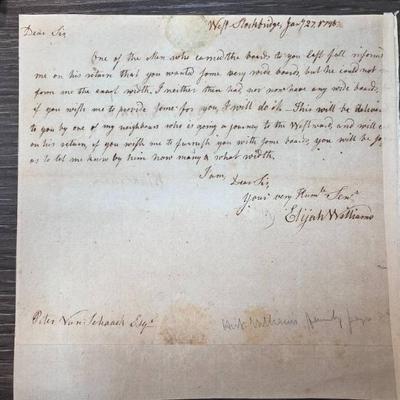 West Stockbridge, Jany 27, 1786
Dear Sir,
One of the Men who carried the boards to you last fall inform
me on his return that you wanted some very wide boards but he could not
form me the exact width. I neither then had, nor now have any wide boards
if you wish me to provide some for you, I will do it — This will be deliver
to you by one of my neighbours who is going a journey to the Westward, and will
on his return, if you wish me to furnish you with some boards, you will be
as to let me know by him how many & what width.
I am,
Dear Sir,
Your very Humle Servt
Elijah Williams
Peter Van Schaack Esqr
Williams family